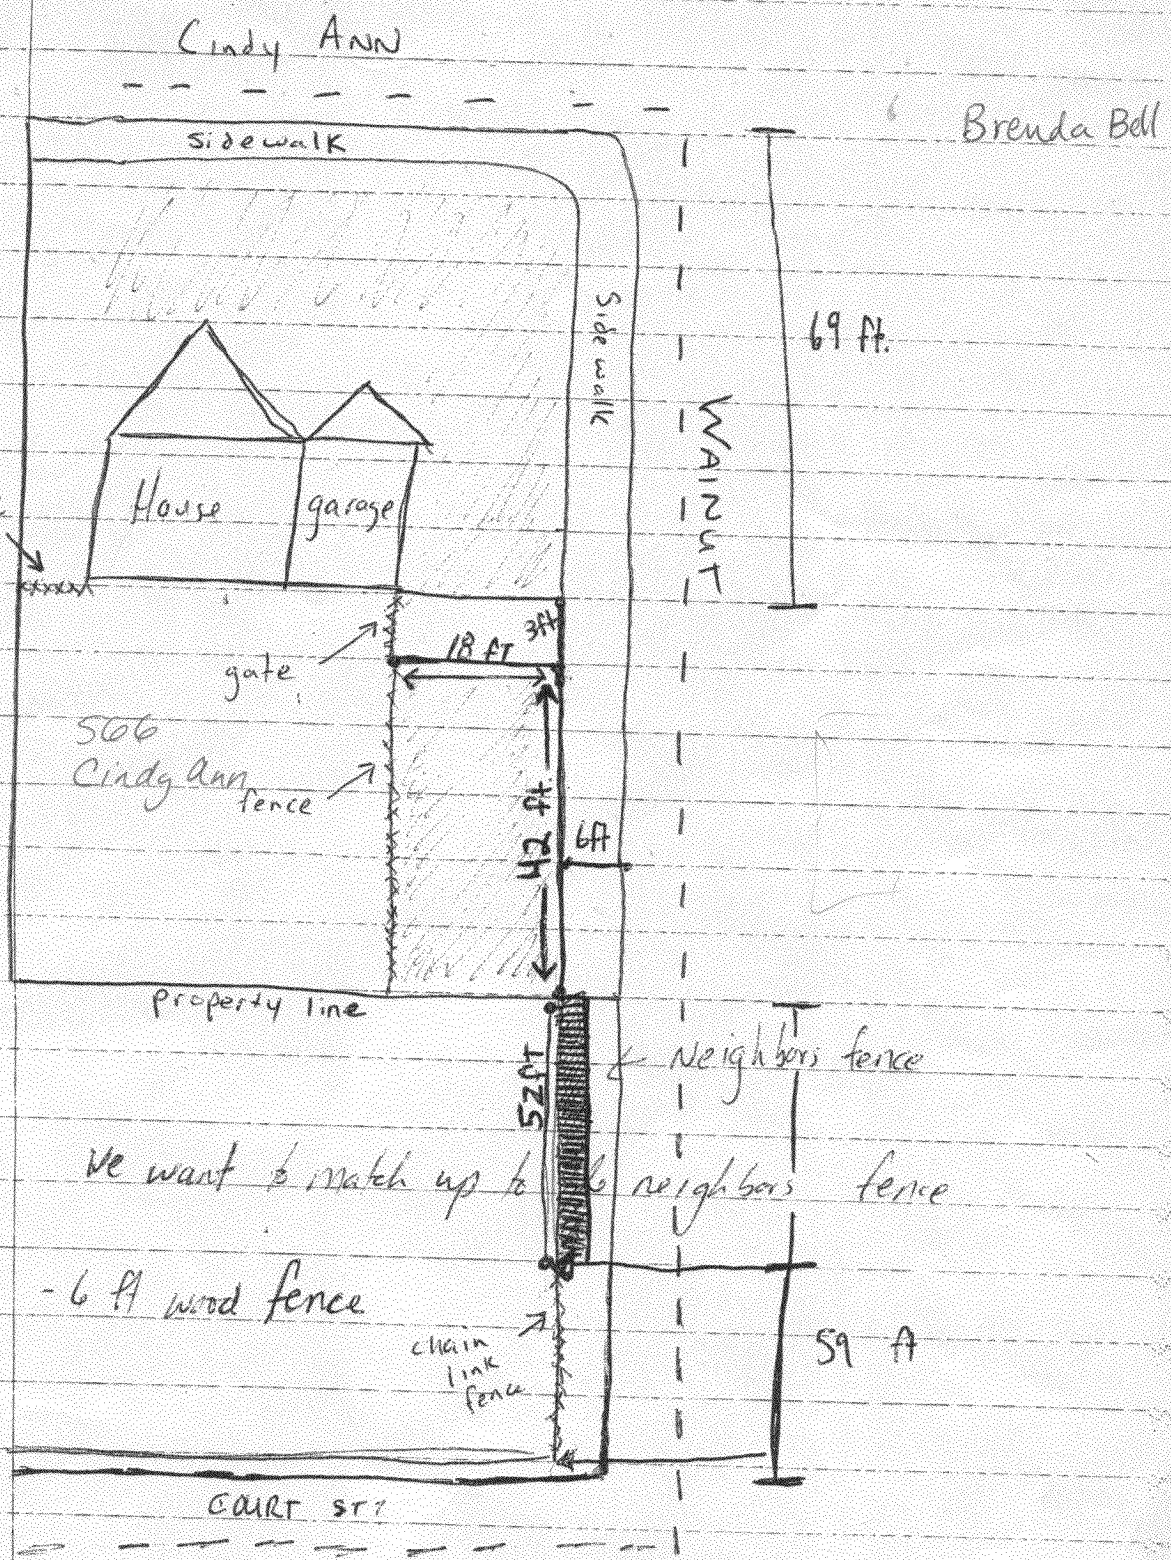 Cindy ANN
Brenda Bell
Sidewalk
Sidewalk
69 ft.
WAlNUT
House
garage
3ft
18 FT
gate
566
Cindy Ann
fence
42 ft.
6ft
property line
Neighbors fence
52ft
We want to match up to neighbors fence
- 6 ft wood fence
chain
link
fence
59 ft
COURT ST